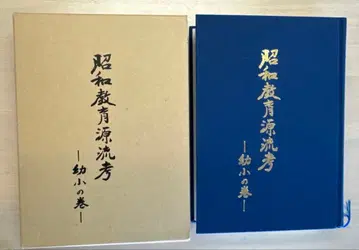 昭和教育源流考
―幼小の巻―
昭和教育源流考
―幼小の巻―